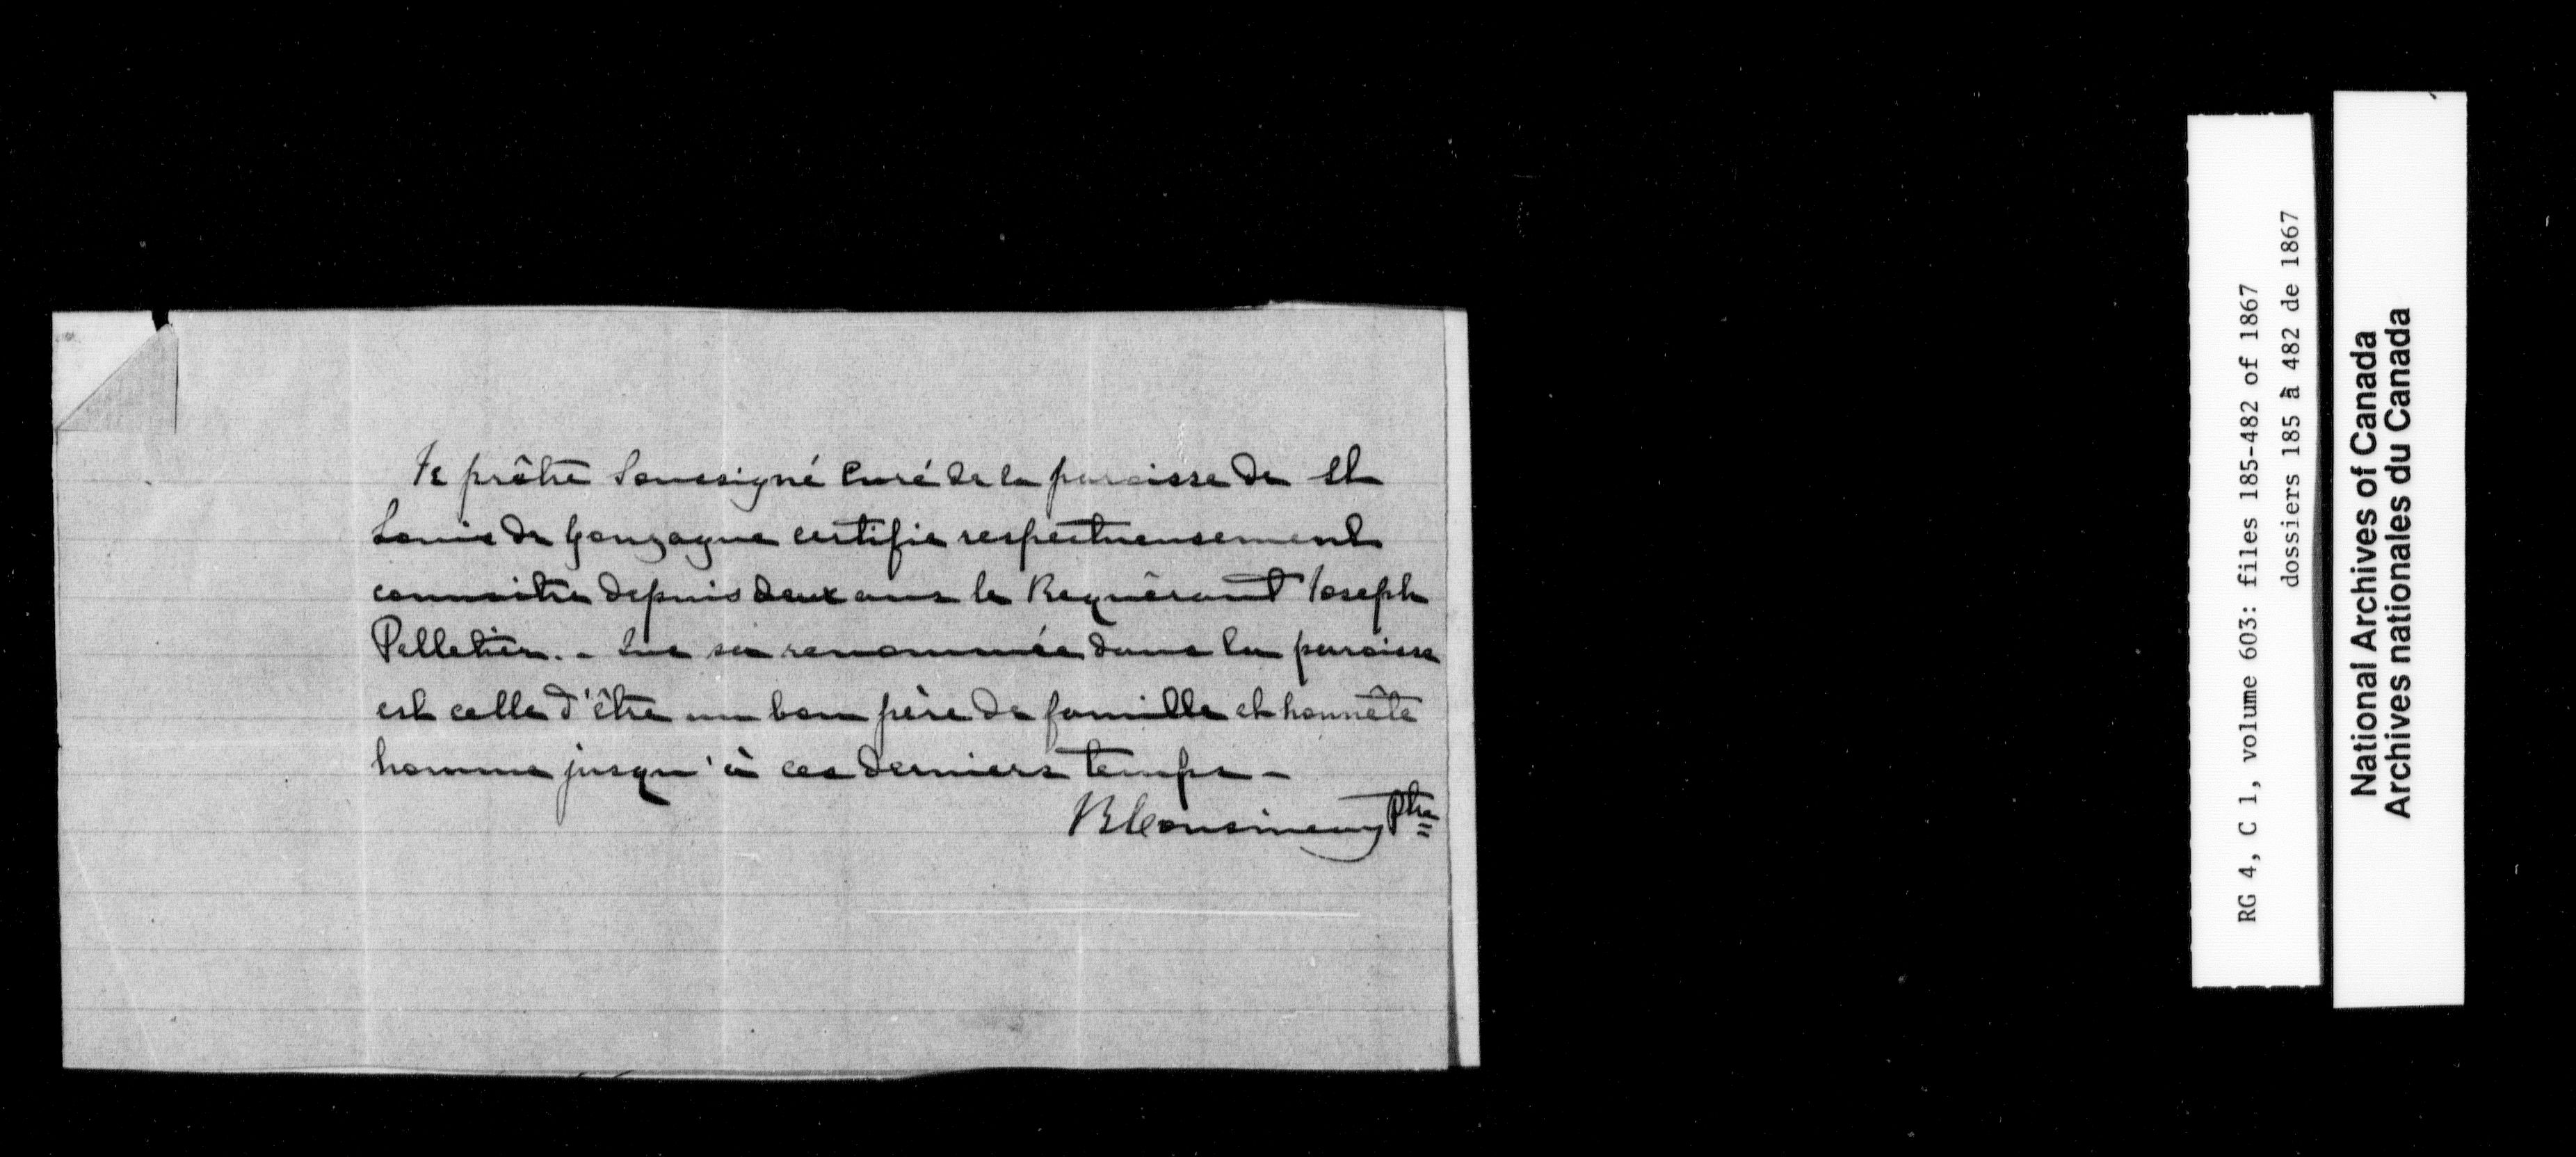 Je prêtre Soussigné Curé de la paroisse de St
Louis de Gonzague certifie respectueusement
connaitre depuis deux ans le Requérant Joseph
Pelletier. - Que sa renommée dans la paroisse
est celle d'être un bon père de famille et honnête
homme jusqu'à ces derniers temps -
Ptre
RG 4, C 1, volume 603: files 185-482 of 1867
dossiers 185 à 482 de 1867
National Archives of Canada
Archives nationales du Canada